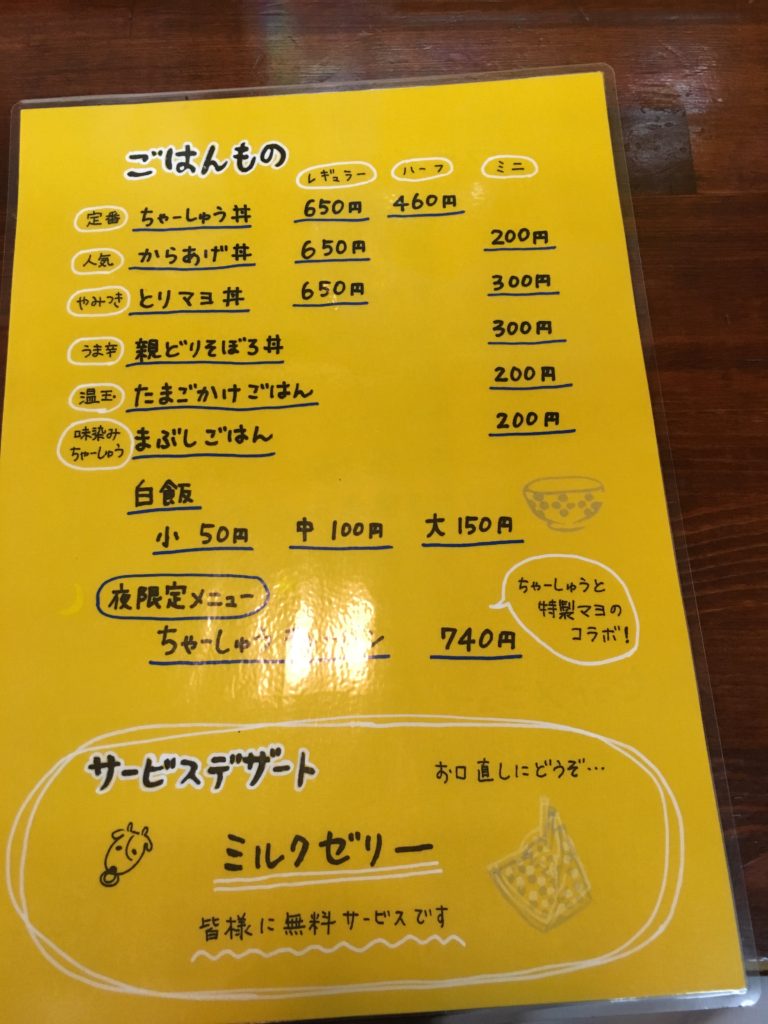 ごはんもの
レギュラー ハーフ ミニ
定番 ちゃーしゅう丼 650円 460円
人気 からあげ丼 650円 200円
やみつき とりマヨ丼 650円 300円
うま辛 親どりそぼろ丼 300円
温玉 たまごかけごはん 200円
味染みちゃーしゅう まぶしごはん 200円
白飯
小 50円 中 100円 大 150円
夜限定メニュー
ちゃーしゅう 740円
ちゃーしゅうと
特製マヨの
コラボ!
サービスデザート
お口直しにどうぞ…
ミルクゼリー
皆様に無料サービスです